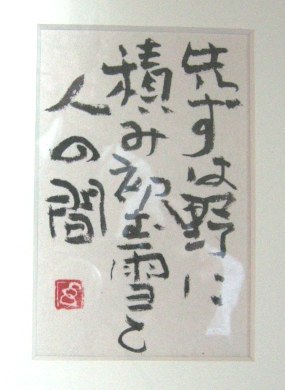 先ずは野に
積み初む雪と
人の間